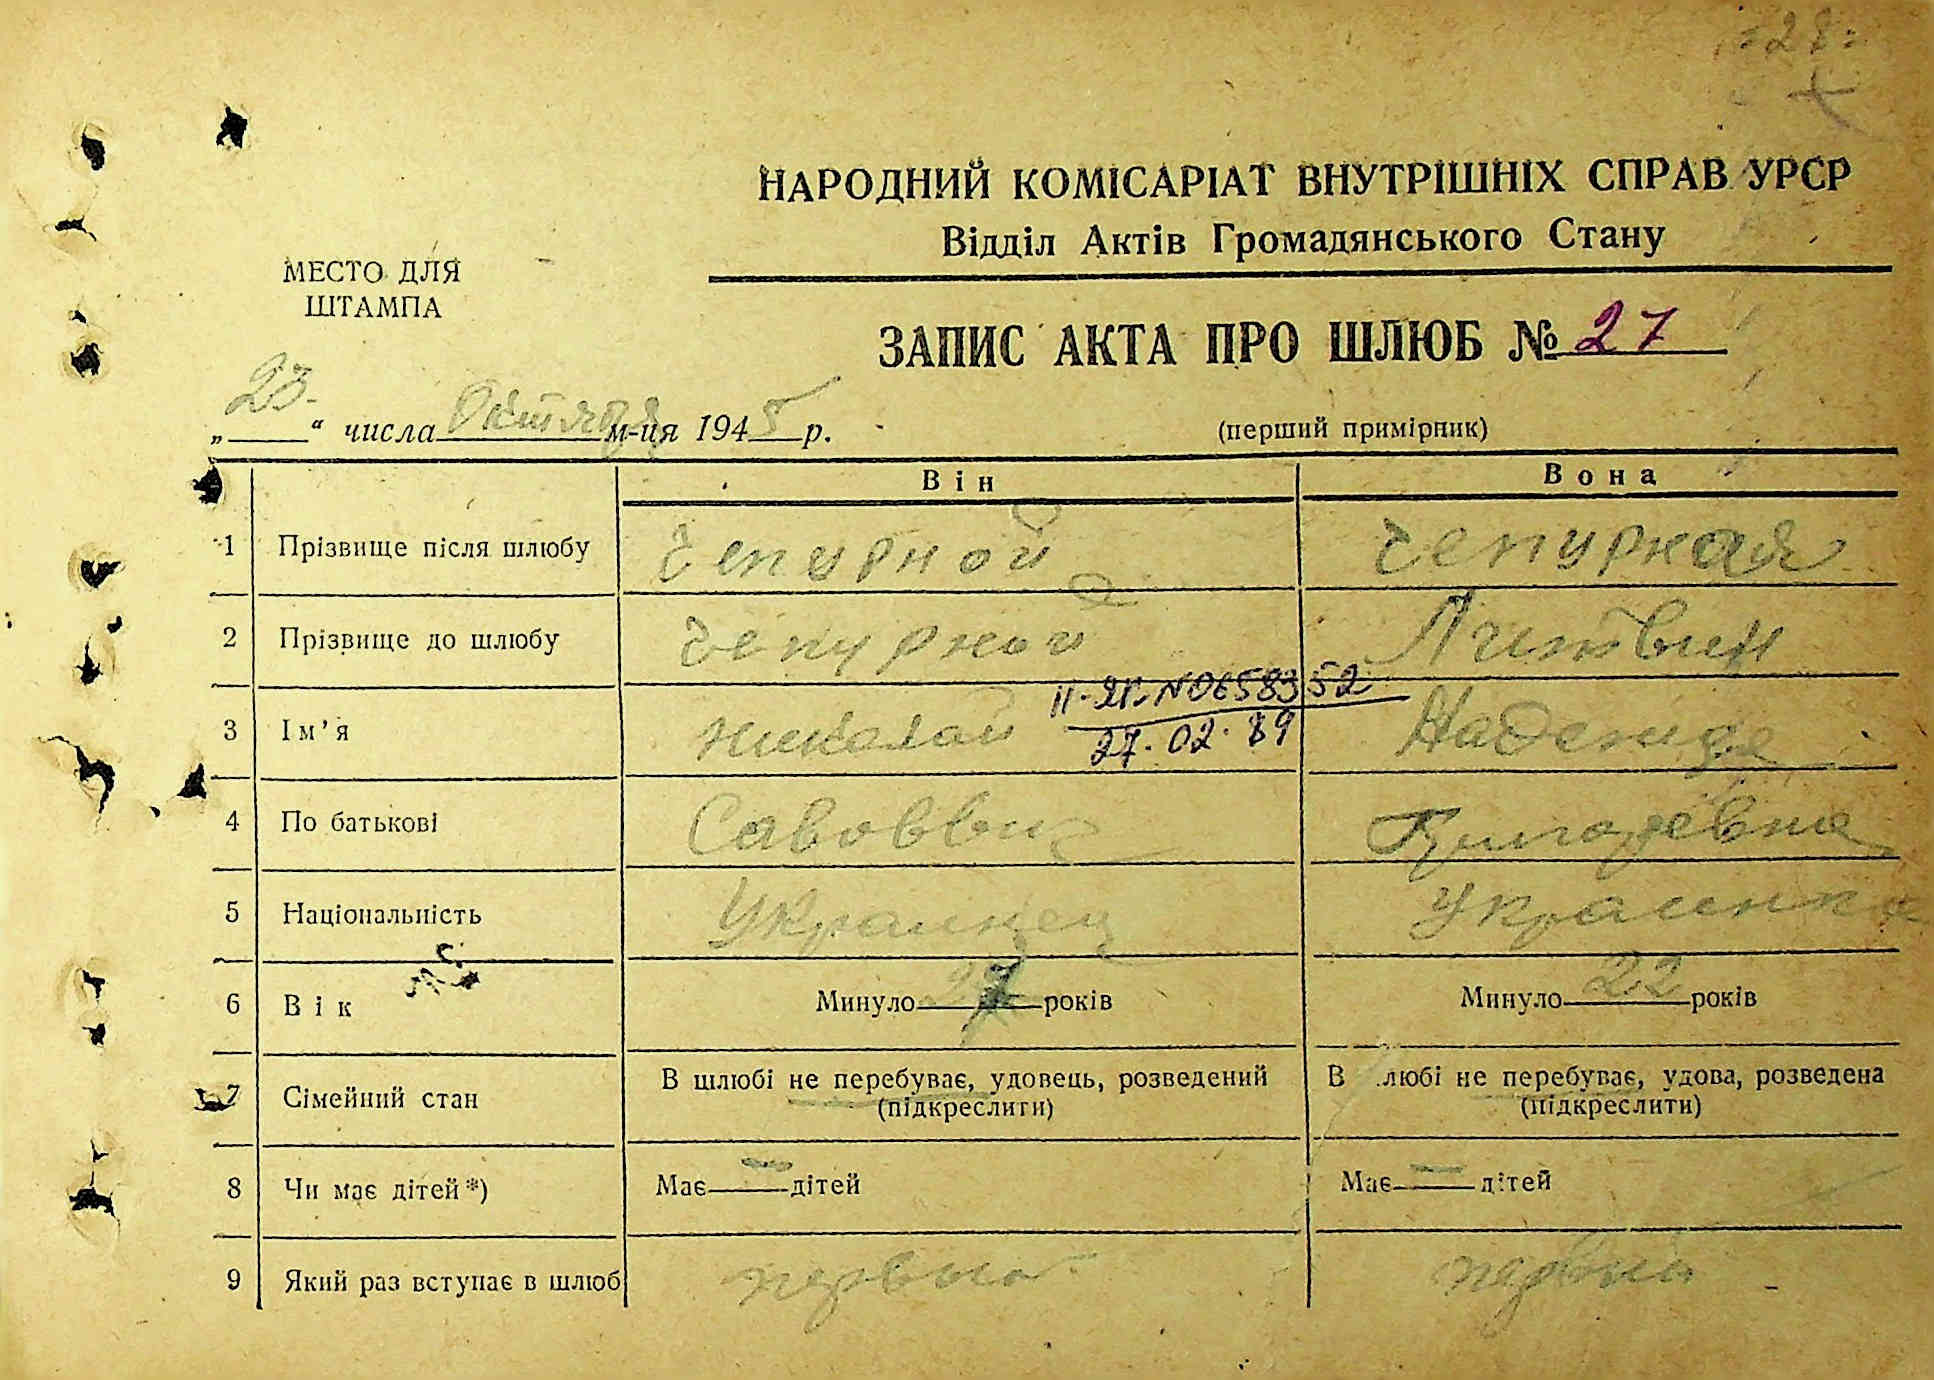 27
НАРОДНИЙ КОМІСАРІАТ ВНУТРІШНІХ СПРАВ УРСР
Відділ Актів Громадянського Стану
МЕСТО ДЛЯ
ШТАМПА
ЗАПИС АКТА ПРО ШЛЮБ № 27
„23“ числа Октября м-ця 1945 р.
(перший примірник)
Він Вона
1 Прізвище після шлюбу Чепурной Чепурная
2 Прізвище до шлюбу Чепурной Литвин
3 Ім'я Николай Надежда
27.02.89
4 По батькові Савович Григорьевна
5 Національність Украинец Украинка
6 Вік Минуло 27 років Минуло 22 років
7 Сімейний стан В шлюбі не перебуває, удовець, розведений В любі не перебуває, удова, розведена
(підкреслити) (підкреслити)
8 Чи має дітей*) Має — дітей Має — дітей
9 Який раз вступає в шлюб первый первый